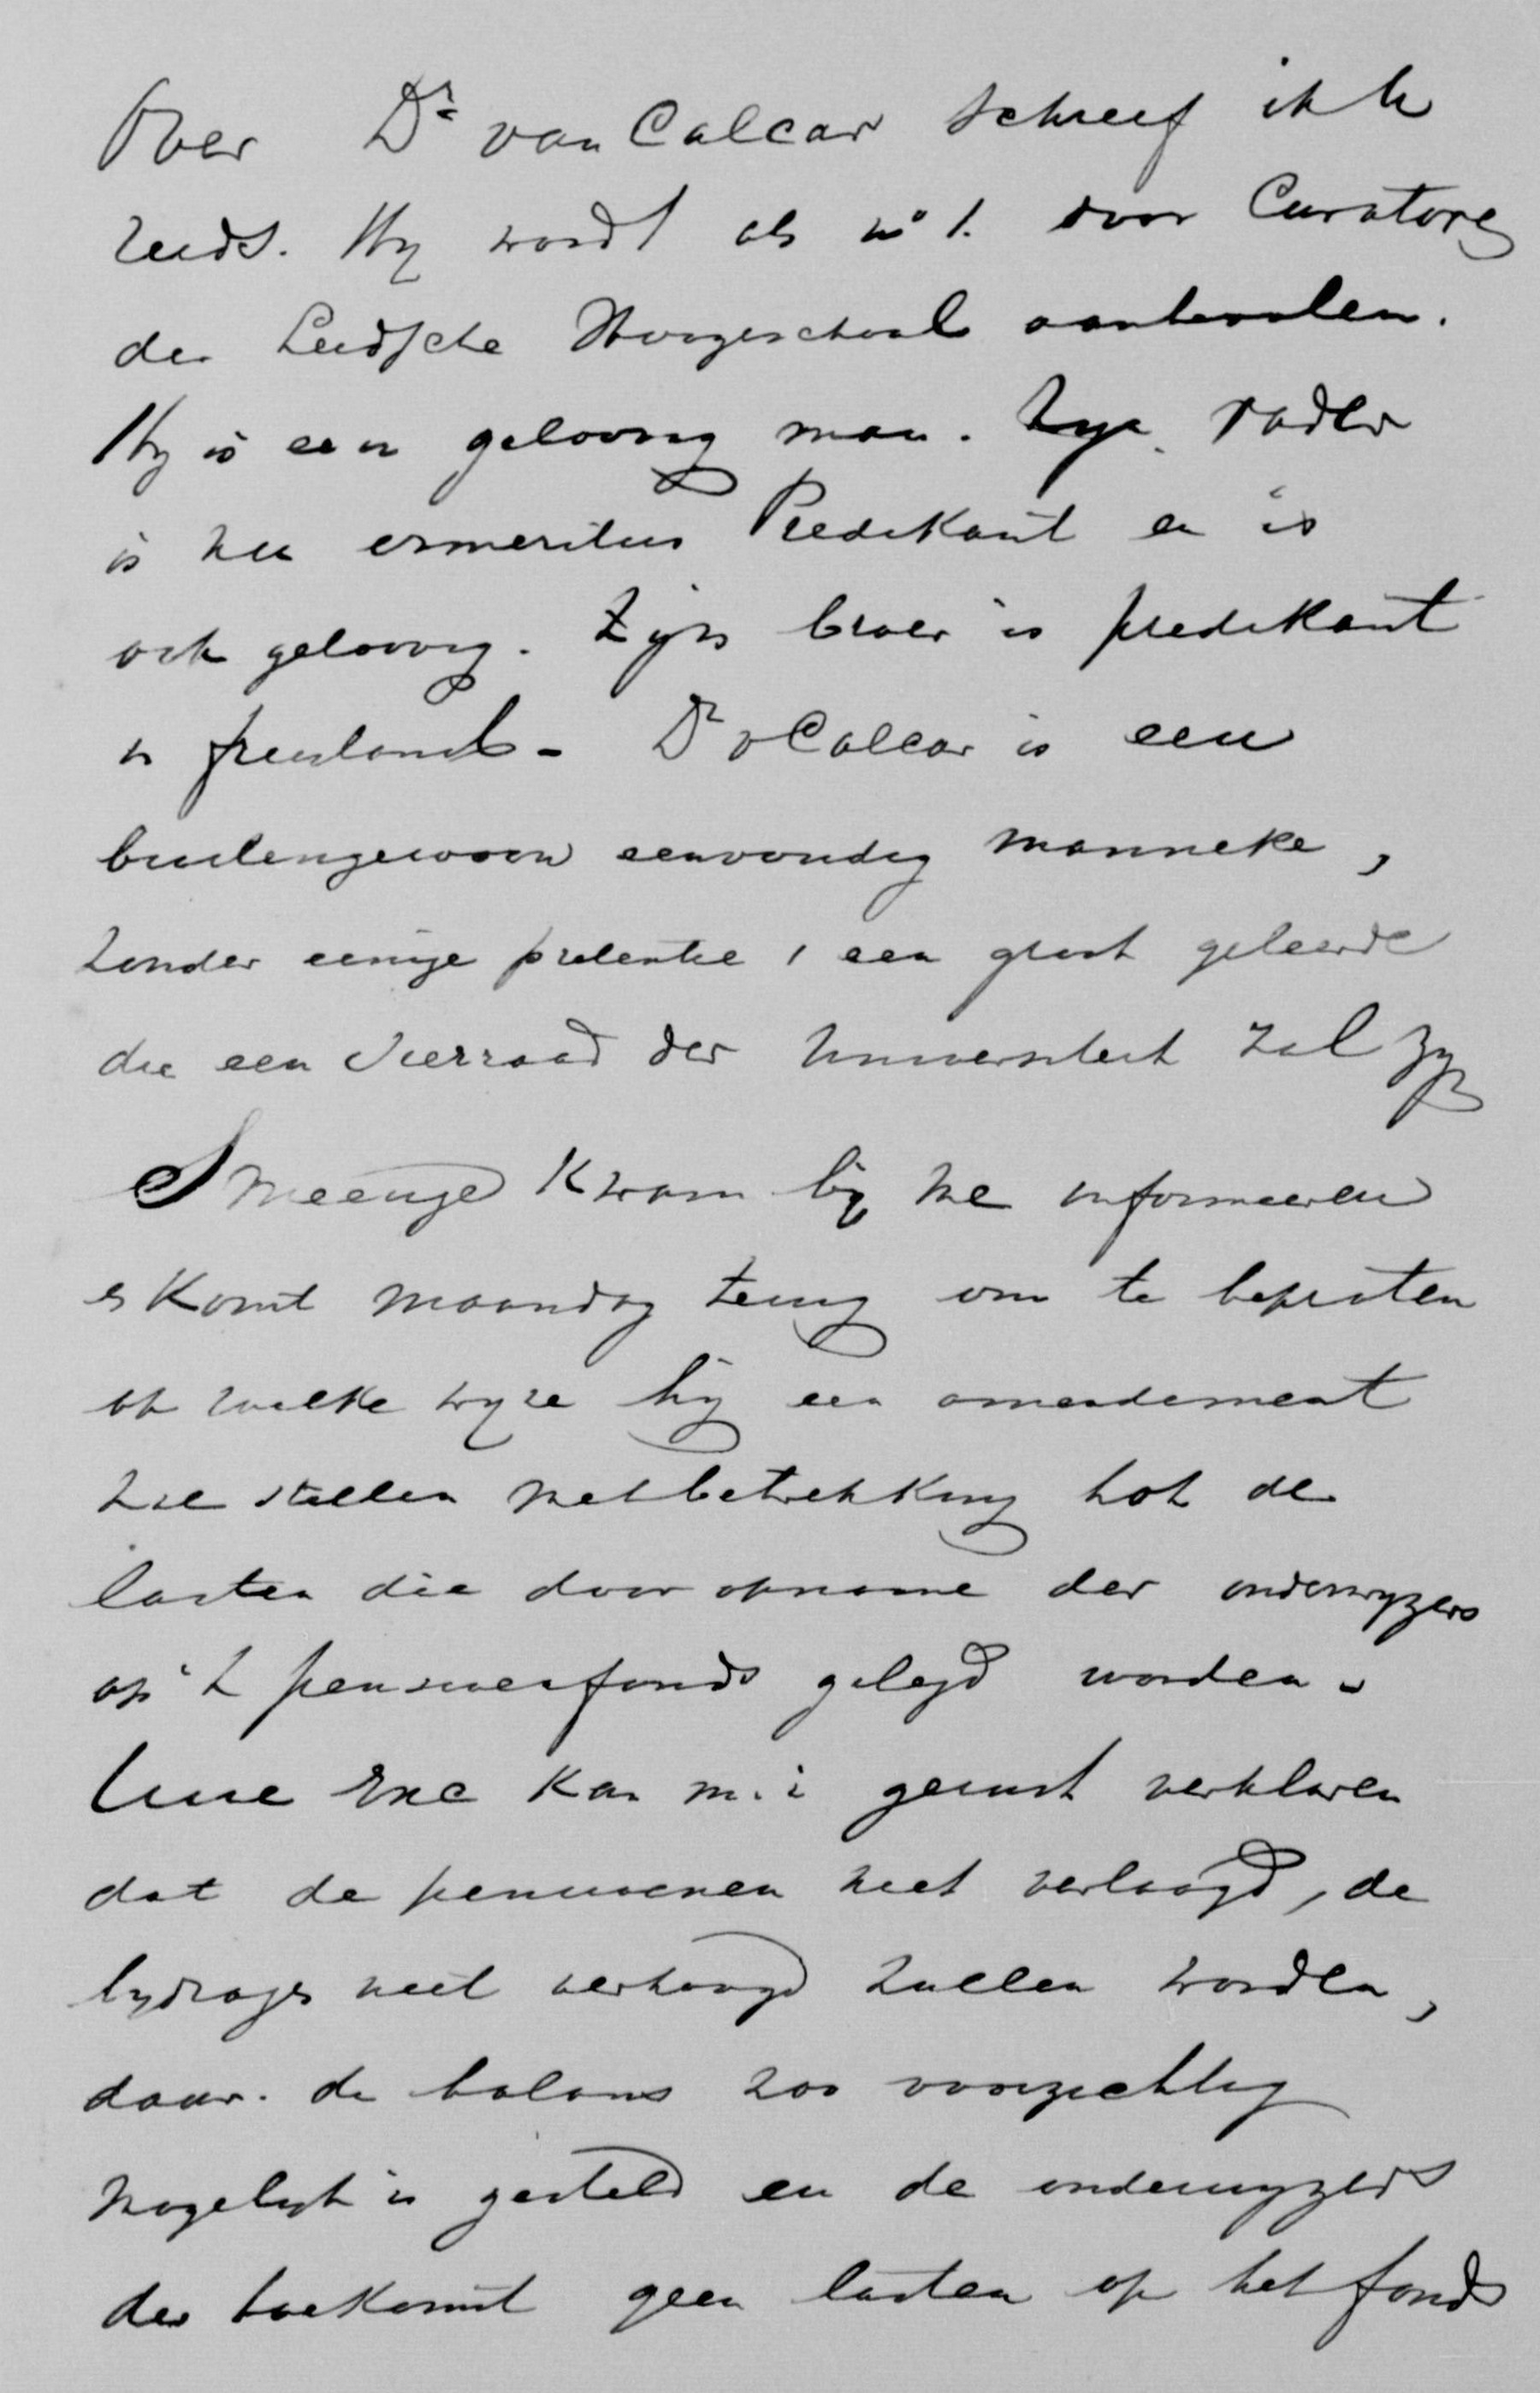 Over Dr van Calcar schreef ik U
reeds. Hij wordt als no 1. door Curatoren
der Leidsche Hoogeschool aanbevolen.
Hij is een geloovig man. Zijn vader
is nu emeritus Predikant en is
ook geloovig. Zijn broer is predikant
in friesland - Dr v Calcar is een
buitengewoon eenvoudig manneke,
zonder eenige pretentie, een groot geleerde
die een sieraad der Universiteit zal zijn
Smeenge kwam bij me informeeren
en komt maandag terug om te bepraten
op welke wijze hij een amendement
zal stellen met betrekking tot de
lasten die door opname der onderwijzers
op 't pensioenfonds gelegd worden.
Uwe Exc kan m.i gerust verklaren
dat de pensioenen niet verlaagd, de
bijdrages niet verhoogd zullen worden,
daar de balans zoo voorzichtig
mogelijk is gesteld en de onderwijzers
der toekomst geen lasten op het fonds